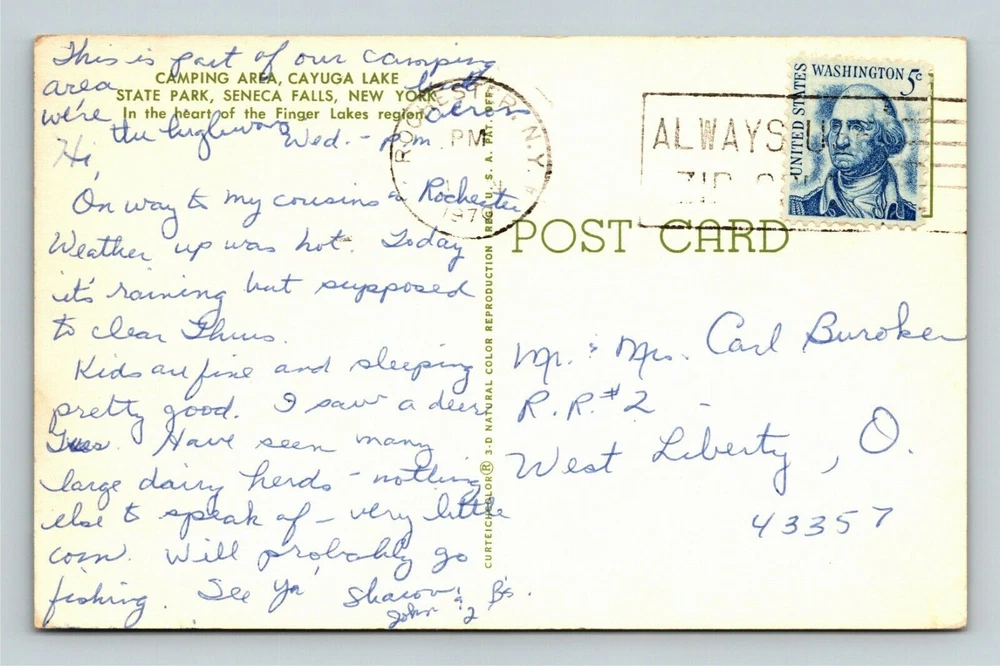 This is part of our camping
area but
we're across
the highway
CAMPING AREA, CAYUGA LAKE
STATE PARK, SENECA FALLS, NEW YORK
In the heart of the Finger Lakes region.
Wed. - pm
Hi
On way to my cousins in Rochester
Weather up was hot. Today
it's raining but supposed
to clear Thurs.
Kids are fine and sleeping
pretty good. I saw a deer
Tues. Have seen many
large dairy herds - nothing
else to speak of - very little
corn. Will probably go
fishing. See Ya' Sharon
John & 2 B's.
CURTEICHCOLOR® 3-D NATURAL COLOR REPRODUCTION REG'D U.S.A. PAT. OFF.
ROCHESTER, N.Y.
PM
197
ALWAYS USE
ZIP
UNITED STATES
WASHINGTON 5c
POST CARD
Mr. & Mrs. Carl Buroker
R.R. #2 -
West Liberty, O.
43357